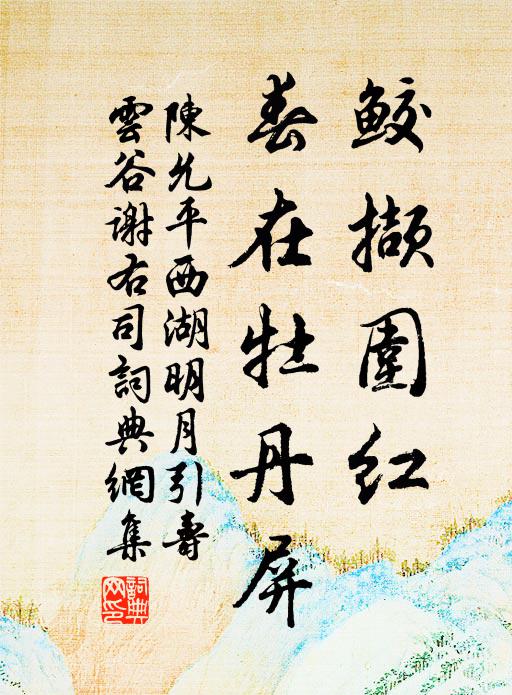 鮫擷圍紅
春在牡丹屏
陳允平西湖明月引壽
雲谷谢右司詞典網集
詞典網印